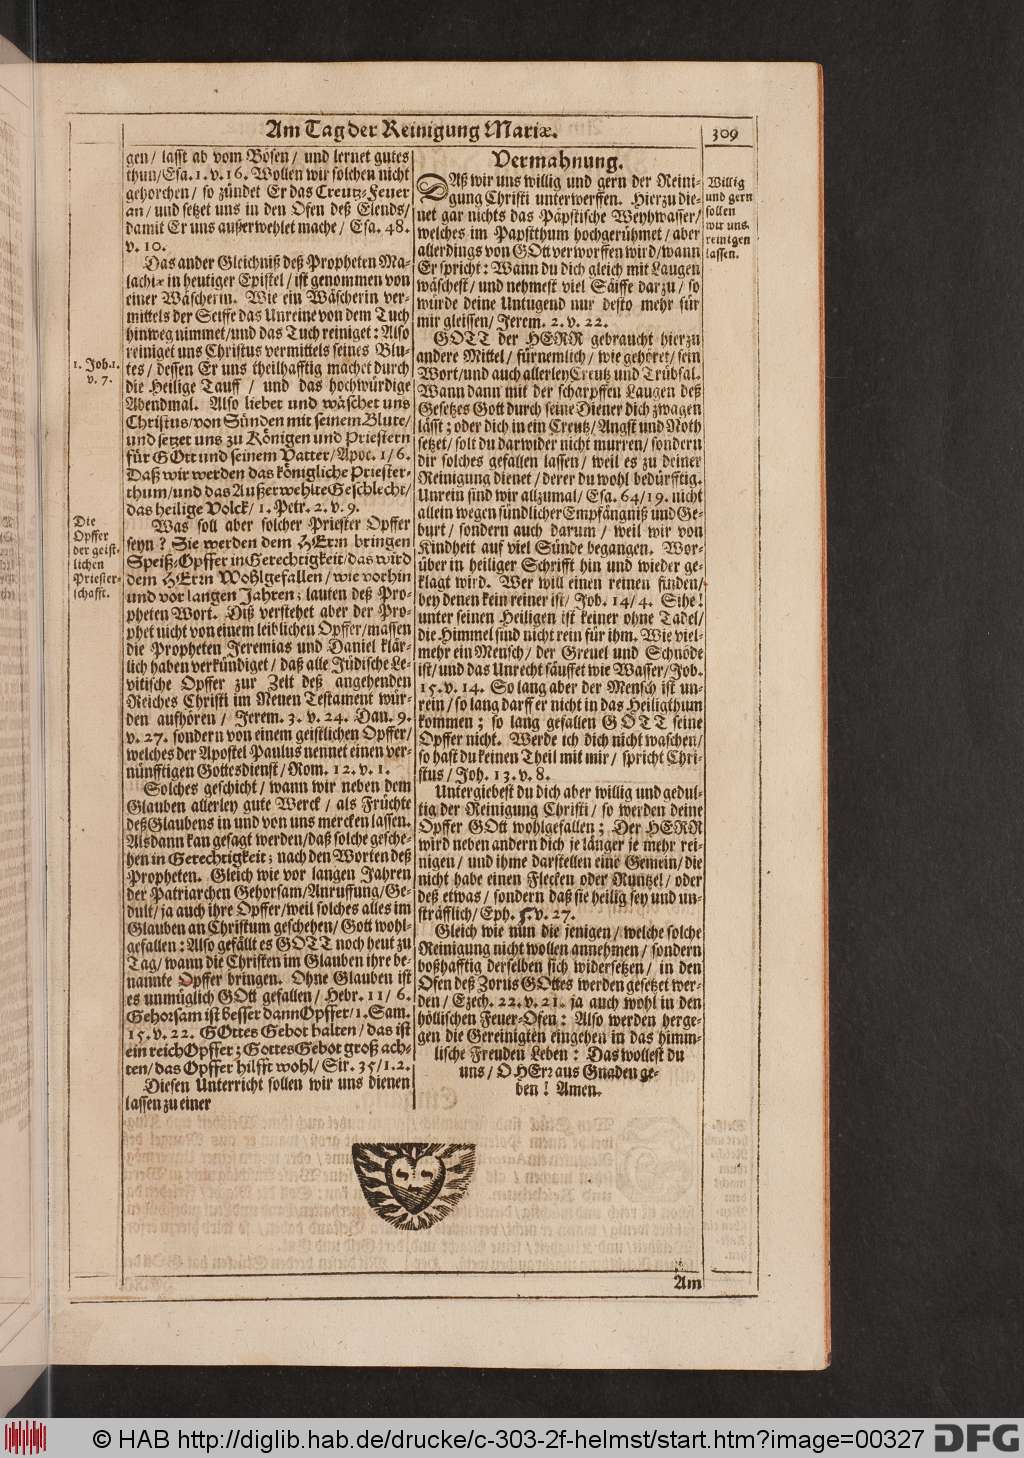 Am Tag der Reinigung Mariæ.
309
gen/ lasst ab vom Bösen/ und lernet gutes
thun/ Esa. 1. v. 16. Wollen wir solchen nicht
gehorchen/ so zündet Er das Creutz-Feuer
an/ und setzet uns in den Ofen deß Elends/
damit Er uns außerwehlet mache/ Esa. 48.
v. 10.
Das ander Gleichniß deß Propheten Ma-
lachiæ in heutiger Epistel/ ist genommen von
einer Wäscherin. Wie ein Wäscherin ver-
mittels der Seiffe das Unreine von dem Tuch
hinweg nimmet/ und das Tuch reiniget: Also
reiniget uns Christus vermittels seines Blu-
tes/ dessen Er uns theilhafftig machet durch
die Heilige Tauff/ und das hochwürdige
Abendmal. Also liebet und wäschet uns
Christus/ von Sünden mit seinem Blute/
und setzet uns zu Königen und Priestern
für GOtt und seinem Vatter/ Apoc. 1/6.
Daß wir werden das königliche Priester-
thum/ und das Außerwehlte Geschlecht/
das heilige Volck/ 1. Petr. 2. v. 9.
Was soll aber solcher Priester Opffer
seyn? Sie werden dem HErrn bringen
Speiß-Opffer in Gerechtigkeit/ das wird
dem HErrn Wolgefallen/ wie vorhin
und vor langen Jahren; lauten deß Pro-
pheten Wort. Diß verstehet aber der Pro-
phet nicht von einem leiblichen Opffer/ massen
die Propheten Jeremias und Daniel klär-
lich haben verkündiget/ daß alle Jüdische Le-
vitische Opffer zur Zeit deß angehenden
Reiches Christi im Neuen Testament wür-
den aufhören/ Jerem. 3. v. 24. Dan. 9.
v. 27. sondern von einem geistlichen Opffer/
welches der Apostel Paulus nennet einen ver-
nünfftigen Gottesdienst/ Rom. 12. v. 1.
Solches geschicht/ wann wir neben dem
Glauben allerley gute Werck/ als Früchte
deß Glaubens in und von uns mercken lassen.
Alsdann kan gesagt werden/ daß solche gesche-
hen in Gerechtigkeit; nach den Worten deß
Propheten. Gleich wie vor langen Jahren
der Patriarchen Gehorsam/ Anruffung/ Ge-
dult/ ja auch ihre Opffer/ weil solches alles im
Glauben an Christum geschehen/ Gott wohl-
gefallen: Also gefällt es GOTT noch heut zu
Tag/ wann die Christen im Glauben ihre be-
nannte Opffer bringen. Ohne Glauben ist
es unmüglich GOtt gefallen/ Hebr. 11/6.
Gehorsam ist besser dann Opffer/ 1. Sam.
15. v. 22. GOttes Gebot halten/ das ist
ein reich Opffer; Gottes Gebot groß ach-
ten/ das Opffer hilfft wohl/ Sir. 35/1.2.
Diesen Unterricht sollen wir uns dienen
lassen zu einer
1. Joh. 1.
v. 7.
Die
Opffer
der geist-
lichen
Priester-
schafft.
Vermahnung.
DAß wir uns willig und gern der Reini-
gung Christi unterwerffen. Hierzu die-
net gar nichts das Päpstische Weyhwasser/
welches im Papstthum hochgerühmet/ aber
allerdings von GOtt verworffen wird/ wann
Er spricht: Wann du dich gleich mit Laugen
wäschest/ und nehmest viel Säiffe darzu/ so
würde deine Untugend nur desto mehr für
mir gleissen/ Jerem. 2. v. 22.
GOTT der HERR gebraucht hierzu
andere Mittel/ fürnemlich/ wie gehöret/ sein
Wort/ und auch allerley Creutz und Trübsal.
Wann dann mit der scharpffen Laugen deß
Gesetzes Gott durch seine Diener dich zwagen
lässt; oder dich in ein Creutz/ Angst und Noth
setzet/ solt du darwider nicht murren/ sondern
dir solches gefallen lassen/ weil es zu deiner
Reinigung dienet/ derer du wohl bedürfftig.
Unrein sind wir allzumal/ Esa. 64/19. nicht
allein wegen sündlicher Empfängniß und Ge-
burt/ sondern auch darum/ weil wir von
Kindheit auf viel Sünde begangen. Wor-
über in heiliger Schrifft hin und wieder ge-
klagt wird. Wer will einen reinen finden/
bey denen kein reiner ist/ Job. 14/4. Sihe!
unter seinen Heiligen ist keiner ohne Tadel/
die Himmel sind nicht rein für ihm. Wie viel-
mehr ein Mensch/ der Greuel und Schnöde
ist/ und das Unrecht säuffet wie Wasser/ Job.
15. v. 14. So lang aber der Mensch ist un-
rein/ so lang darff er nicht in das Heiligthum
kommen; so lang gefallen GOTT seine
Opffer nicht. Werde ich dich nicht waschen/
so hast du keinen Theil mit mir/ spricht Chri-
stus/ Joh. 13. v. 8.
Untergiebest du dich aber willig und gedul-
tig der Reinigung Christi/ so werden deine
Opffer GOtt wohlgefallen; Der HERR
wird neben andern dich je länger je mehr rei-
nigen/ und ihme darstellen eine Gemein/ die
nicht habe einen Flecken oder Runtzel/ oder
deß etwas/ sondern daß sie heilig sey und un-
sträfflich/ Eph. 5. v. 27.
Gleich wie nun die jenigen/ welche solche
Reinigung nicht wollen annehmen/ sondern
boßhafftig derselben sich widersetzen/ in den
Ofen deß Zorns GOttes werden gesetzet wer-
den/ Ezech. 22. v. 21. ja auch wohl in den
höllischen Feuer-Ofen: Also werden herge-
gen die Gereinigten eingehen in das himm-
lische Freuden Leben: Das wollest du
uns/ O HErr aus Gnaden ge-
ben! Amen.
Willig
und gern
sollen
wir uns
reinigen
lassen.
Am
© HAB http://diglib.hab.de/drucke/c-303-2f-helmst/start.htm?image=00327
DFG